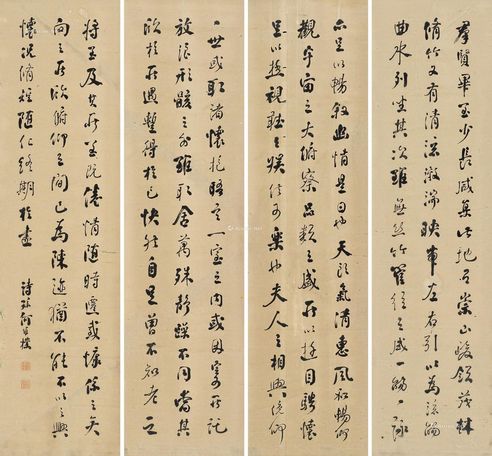 群賢畢至少長咸集此地有崇山峻領茂林
脩竹又有清流激湍映帶左右引以為流觴
曲水列坐其次雖無絲竹管絃之盛一觴一詠
亦足以暢敘幽情是日也天朗氣清惠風和暢仰
觀宇宙之大俯察品類之盛所以遊目騁懷
足以極視聽之娛信可樂也夫人之相與俯仰
一世或取諸懷抱晤言一室之內或因寄所託
放浪形骸之外雖取舍萬殊靜躁不同當其
欣於所遇暫得於己快然自足曾不知老之
將至及其所至既倦情隨時遷感慨係之矣
向之所欣俯仰之間已為陳迹猶不能不以之興
懷況脩短隨化終期於盡
詩孫何維樸